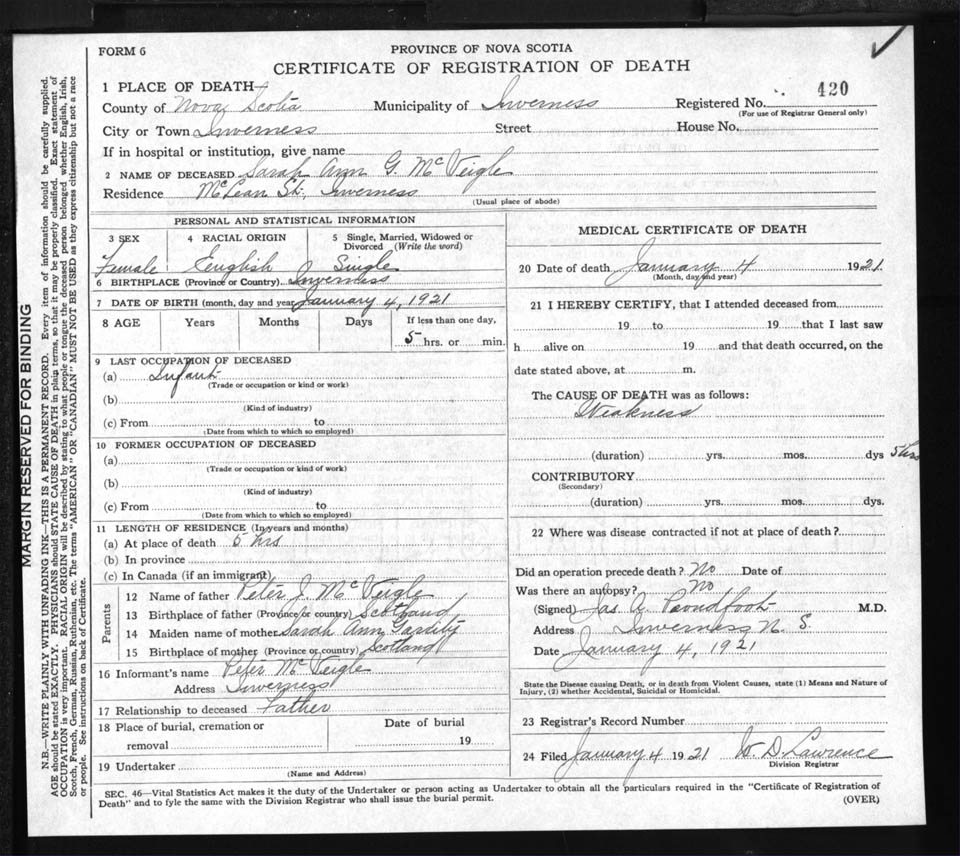 FORM 6
PROVINCE OF NOVA SCOTIA
CERTIFICATE OF REGISTRATION OF DEATH
1 PLACE OF DEATH
County of Nova Scotia Municipality of Inverness Registered No. 420
(For use of Registrar General only)
City or Town Inverness Street House No.
If in hospital or institution, give name
2 NAME OF DECEASED Sarah Ann G. McVeigle
Residence McLean St., Inverness
(Usual place of abode)
PERSONAL AND STATISTICAL INFORMATION
3 SEX 4 RACIAL ORIGIN 5 Single, Married, Widowed or Divorced (Write the word)
Female English Single
6 BIRTHPLACE (Province or Country) Inverness
7 DATE OF BIRTH (month, day and year) January 4, 1921
8 AGE Years Months Days If less than one day,
5 hrs. or min.
9 LAST OCCUPATION OF DECEASED
(a) Infant
(Trade or occupation or kind or work)
(b)
(Kind of industry)
(c) From to
(Date from which to which so employed)
10 FORMER OCCUPATION OF DECEASED
(a)
(Trade or occupation or kind of work)
(b)
(Kind of industry)
(c) From to
(Date from which to which so employed)
11 LENGTH OF RESIDENCE (In years and months)
(a) At place of death 5 hrs
(b) In province
(c) In Canada (if an immigrant)
Parents
12 Name of father Peter J. McVeigle
13 Birthplace of father (Province or country) Scotland
14 Maiden name of mother Sarah Ann
15 Birthplace of mother (Province or country) Scotland
16 Informant's name Peter McVeigle
Address Inverness
17 Relationship to deceased Father
18 Place of burial, cremation or removal Date of burial
19
19 Undertaker
(Name and Address)
MEDICAL CERTIFICATE OF DEATH
20 Date of death January 4 1921
(Month, day and year)
21 I HEREBY CERTIFY, that I attended deceased from
19 to 19 that I last saw
h alive on 19 and that death occurred, on the
date stated above, at m.
The CAUSE OF DEATH was as follows:
Weakness
(duration) yrs. mos. dys 5 hrs
CONTRIBUTORY
(Secondary)
(duration) yrs. mos. dys.
22 Where was disease contracted if not at place of death?
Did an operation precede death? No Date of
Was there an autopsy? No
(Signed) Jas. A. Proudfoot M.D.
Address Inverness N. S.
Date January 4, 1921
State the Disease causing Death, or in death from Violent Causes, state (1) Means and Nature of
Injury, (2) whether Accidental, Suicidal or Homicidal.
23 Registrar's Record Number
24 Filed January 4 1921 W. D. Lawrence
Division Registrar
SEC. 46—Vital Statistics Act makes it the duty of the Undertaker or person acting as Undertaker to obtain all the particulars required in the "Certificate of Registration of
Death" and to fyle the same with the Division Registrar who shall issue the burial permit.
(OVER)
MARGIN RESERVED FOR BINDING
N.B.—WRITE PLAINLY WITH UNFADING INK—THIS IS A PERMANENT RECORD. Every item of information should be carefully supplied.
AGE should be stated EXACTLY. PHYSICIANS should STATE CAUSE OF DEATH in plain terms, so that it may be properly classified. Exact statement of
OCCUPATION is very important. RACIAL ORIGIN will be described by stating to what people or tongue the deceased person belonged whether English, Irish,
Scotch, French, German, Russian, Ruthenian, etc. The terms "AMERICAN" OR "CANADIAN" MUST NOT BE USED as they express citizenship but not a race
or people. See instructions on back of Certificate.